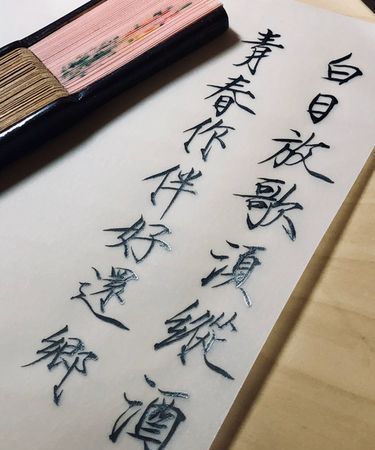 白日放歌須縱酒
青春你伴好還鄉